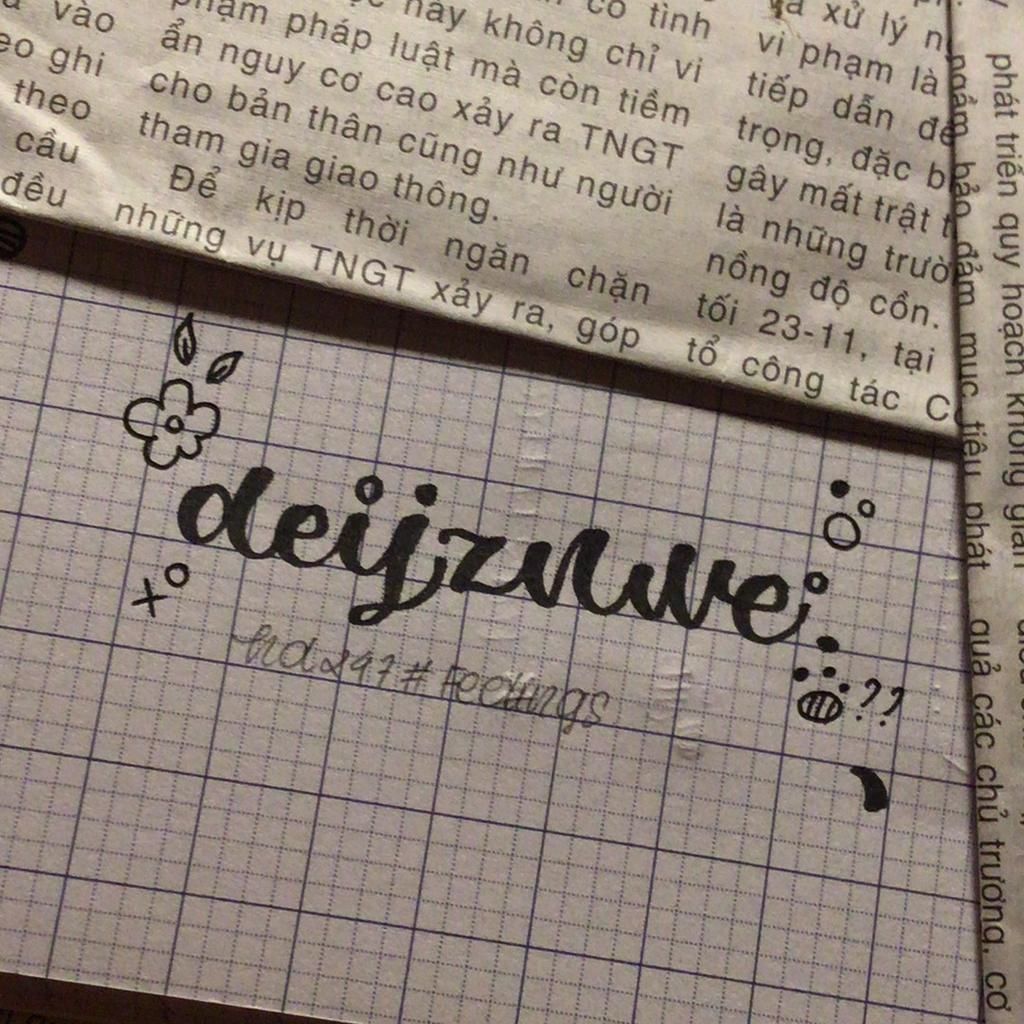 có tình
này không chỉ vi
phạm pháp luật mà còn tiềm
ẩn nguy cơ cao xảy ra TNGT
cho bản thân cũng như người
tham gia giao thông.
Để kịp thời ngăn chặn
những vụ TNGT xảy ra, góp
vào
ghi
theo
cầu
đều
xử lý
vi phạm là
tiếp dẫn
trọng, đặc
gây mất trật
là những
nồng độ cồn.
tối 23-11, tại
tổ công tác
ngầm bảo đảm mục tiêu phát
quả các chủ trương, cơ
phát triển quy hoạch không gian
deijzuwe.
hd247#Feelings
??